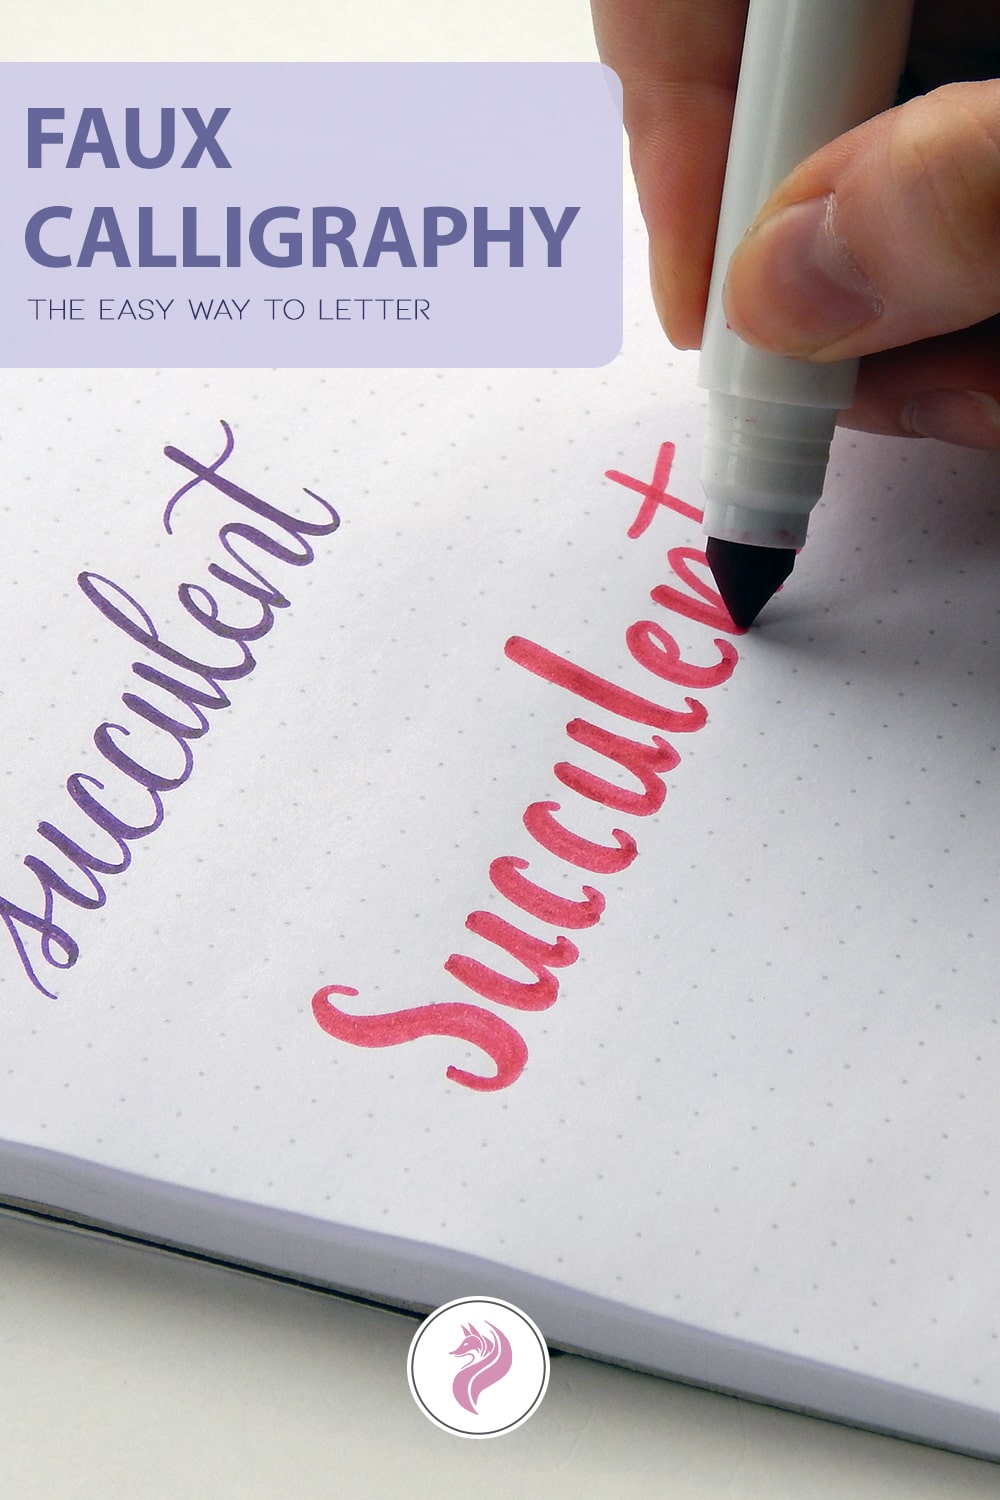 FAUX
CALLIGRAPHY
THE EASY WAY TO LETTER
succulent
Succulent